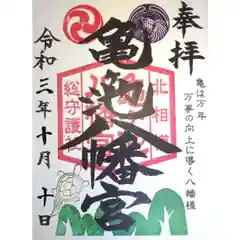 奉拝
亀は万年
万事の向上に導く八幡様
北相模
総守護神
亀池八幡宮
令和三年十月十日